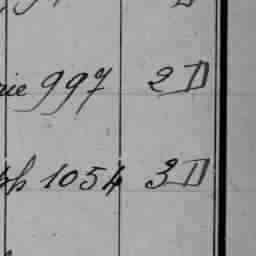 rie 997 2 D
ph 1054 3 D